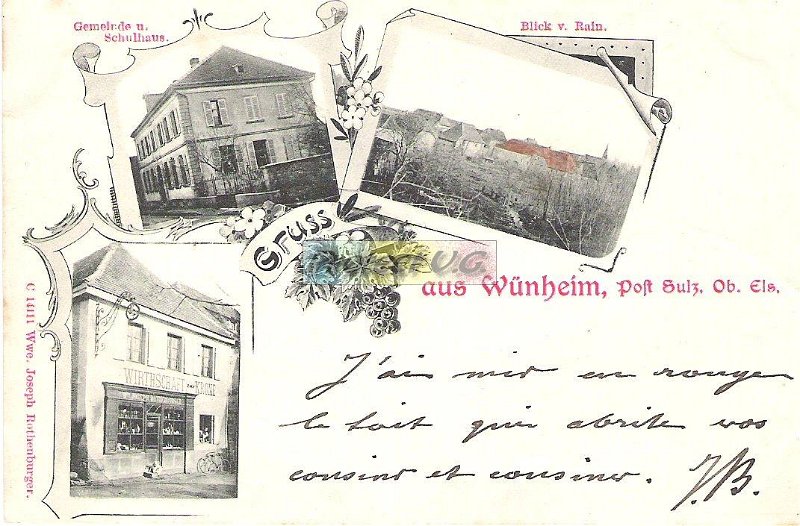 Gemeinde u.
Schulhaus.
Blick v. Rain.
Gruss
aus Wünheim, Post Sulz, Ob. Els.
WIRTHSCHAFT
C 14111 Wwe. Joseph Rothenburger.
J'ai mis en rouge
le toit qui abrite vos
cousins et cousines. J.B.